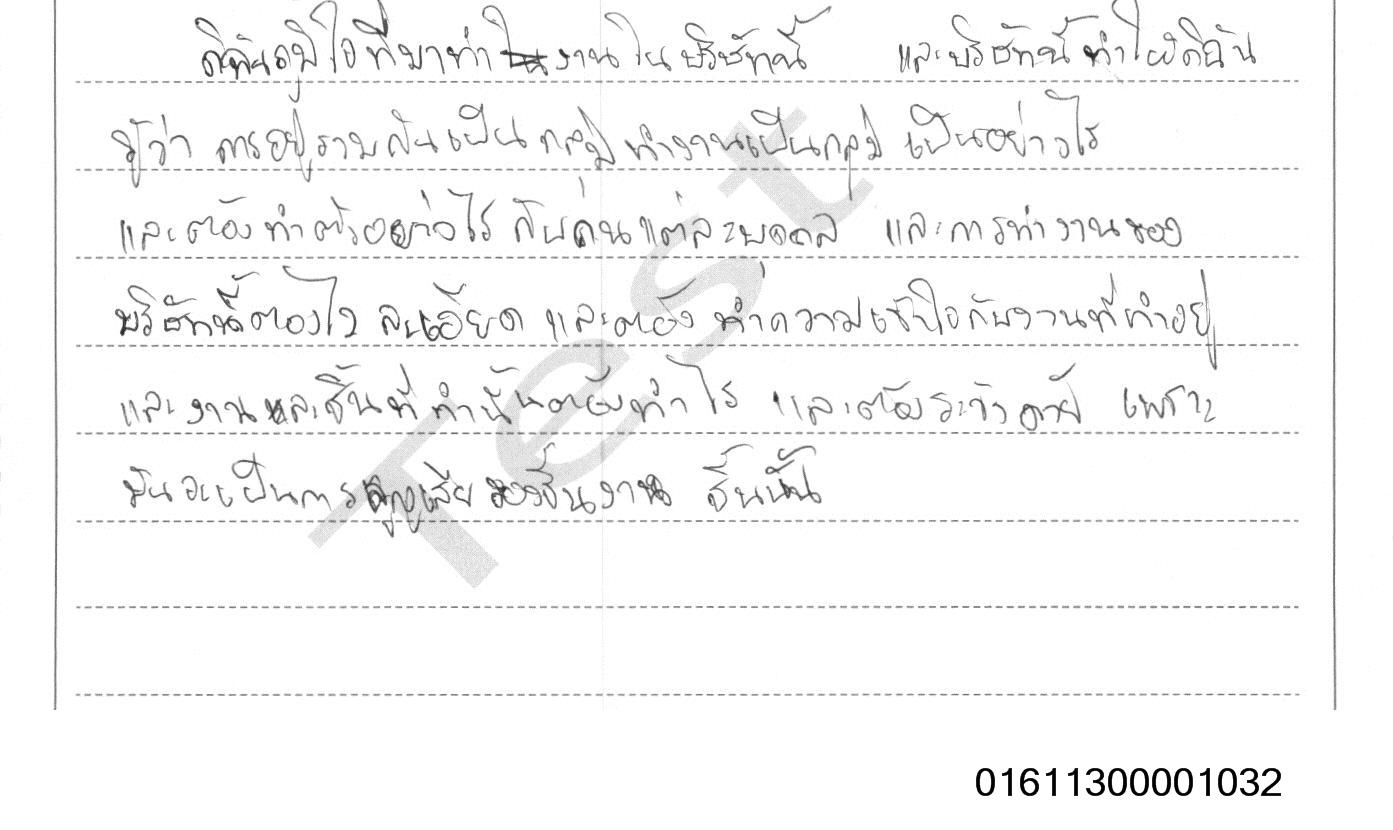 ดิฉันภูมิใจที่มาทำงานในบริษัทนี้ และบริษัทนี้ทำให้ดิฉัน
รู้ว่า การอยู่รวมกันเป็นกลุ่ม ทำงานเป็นกลุ่ม เป็นอย่างไร
และต้องทำตัวอย่างไร กับคนแต่ละบุคคล และการทำงานของ
บริษัทนี้ต้อง ละเอียด และต้อง ทำความเข้าใจกับงานที่ทำอยู่
และงานและชิ้นที่ทำนั้นต้องทำไร และต้องระวัง เพราะ
มันจะเป็นการสูญเสีย ของชิ้นงาน ชิ้นนั้น
Test
01611300001032